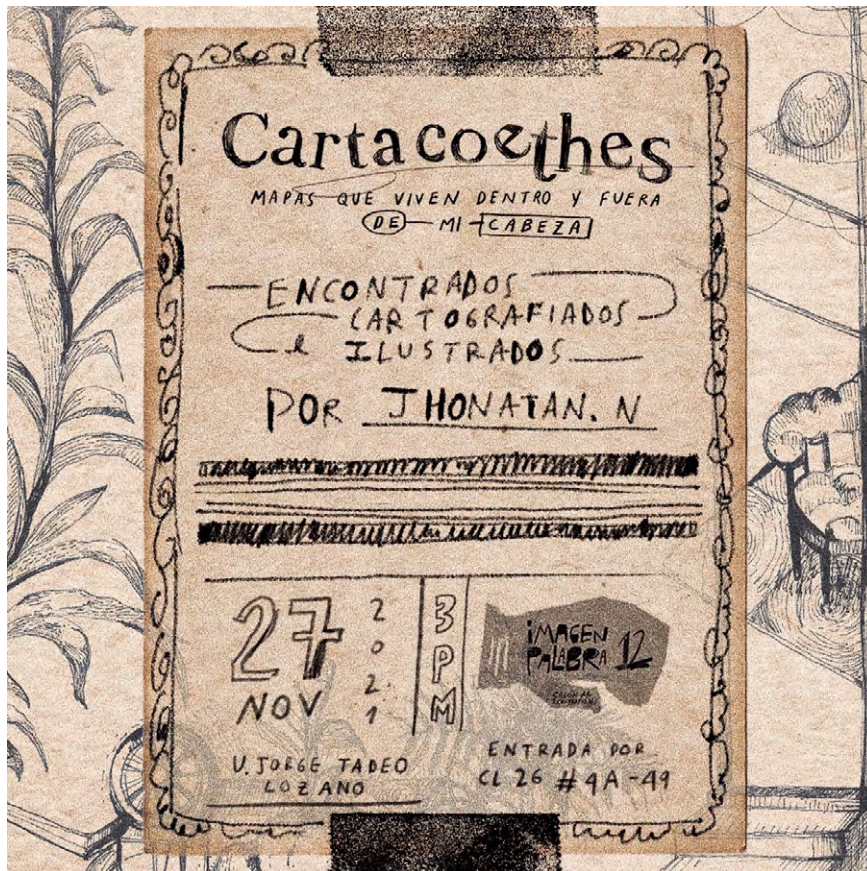 Cartacoethes
MAPAS QUE VIVEN DENTRO Y FUERA
DE MI CABEZA
ENCONTRADOS
CARTOGRAFIADOS
e ILUSTRADOS
POR JHONATAN. N
27
NOV
2021
3PM
IMAGEN
PALABRA 12
U. JORGE TADEO
LOZANO
ENTRADA POR
CL 26 #4A-49